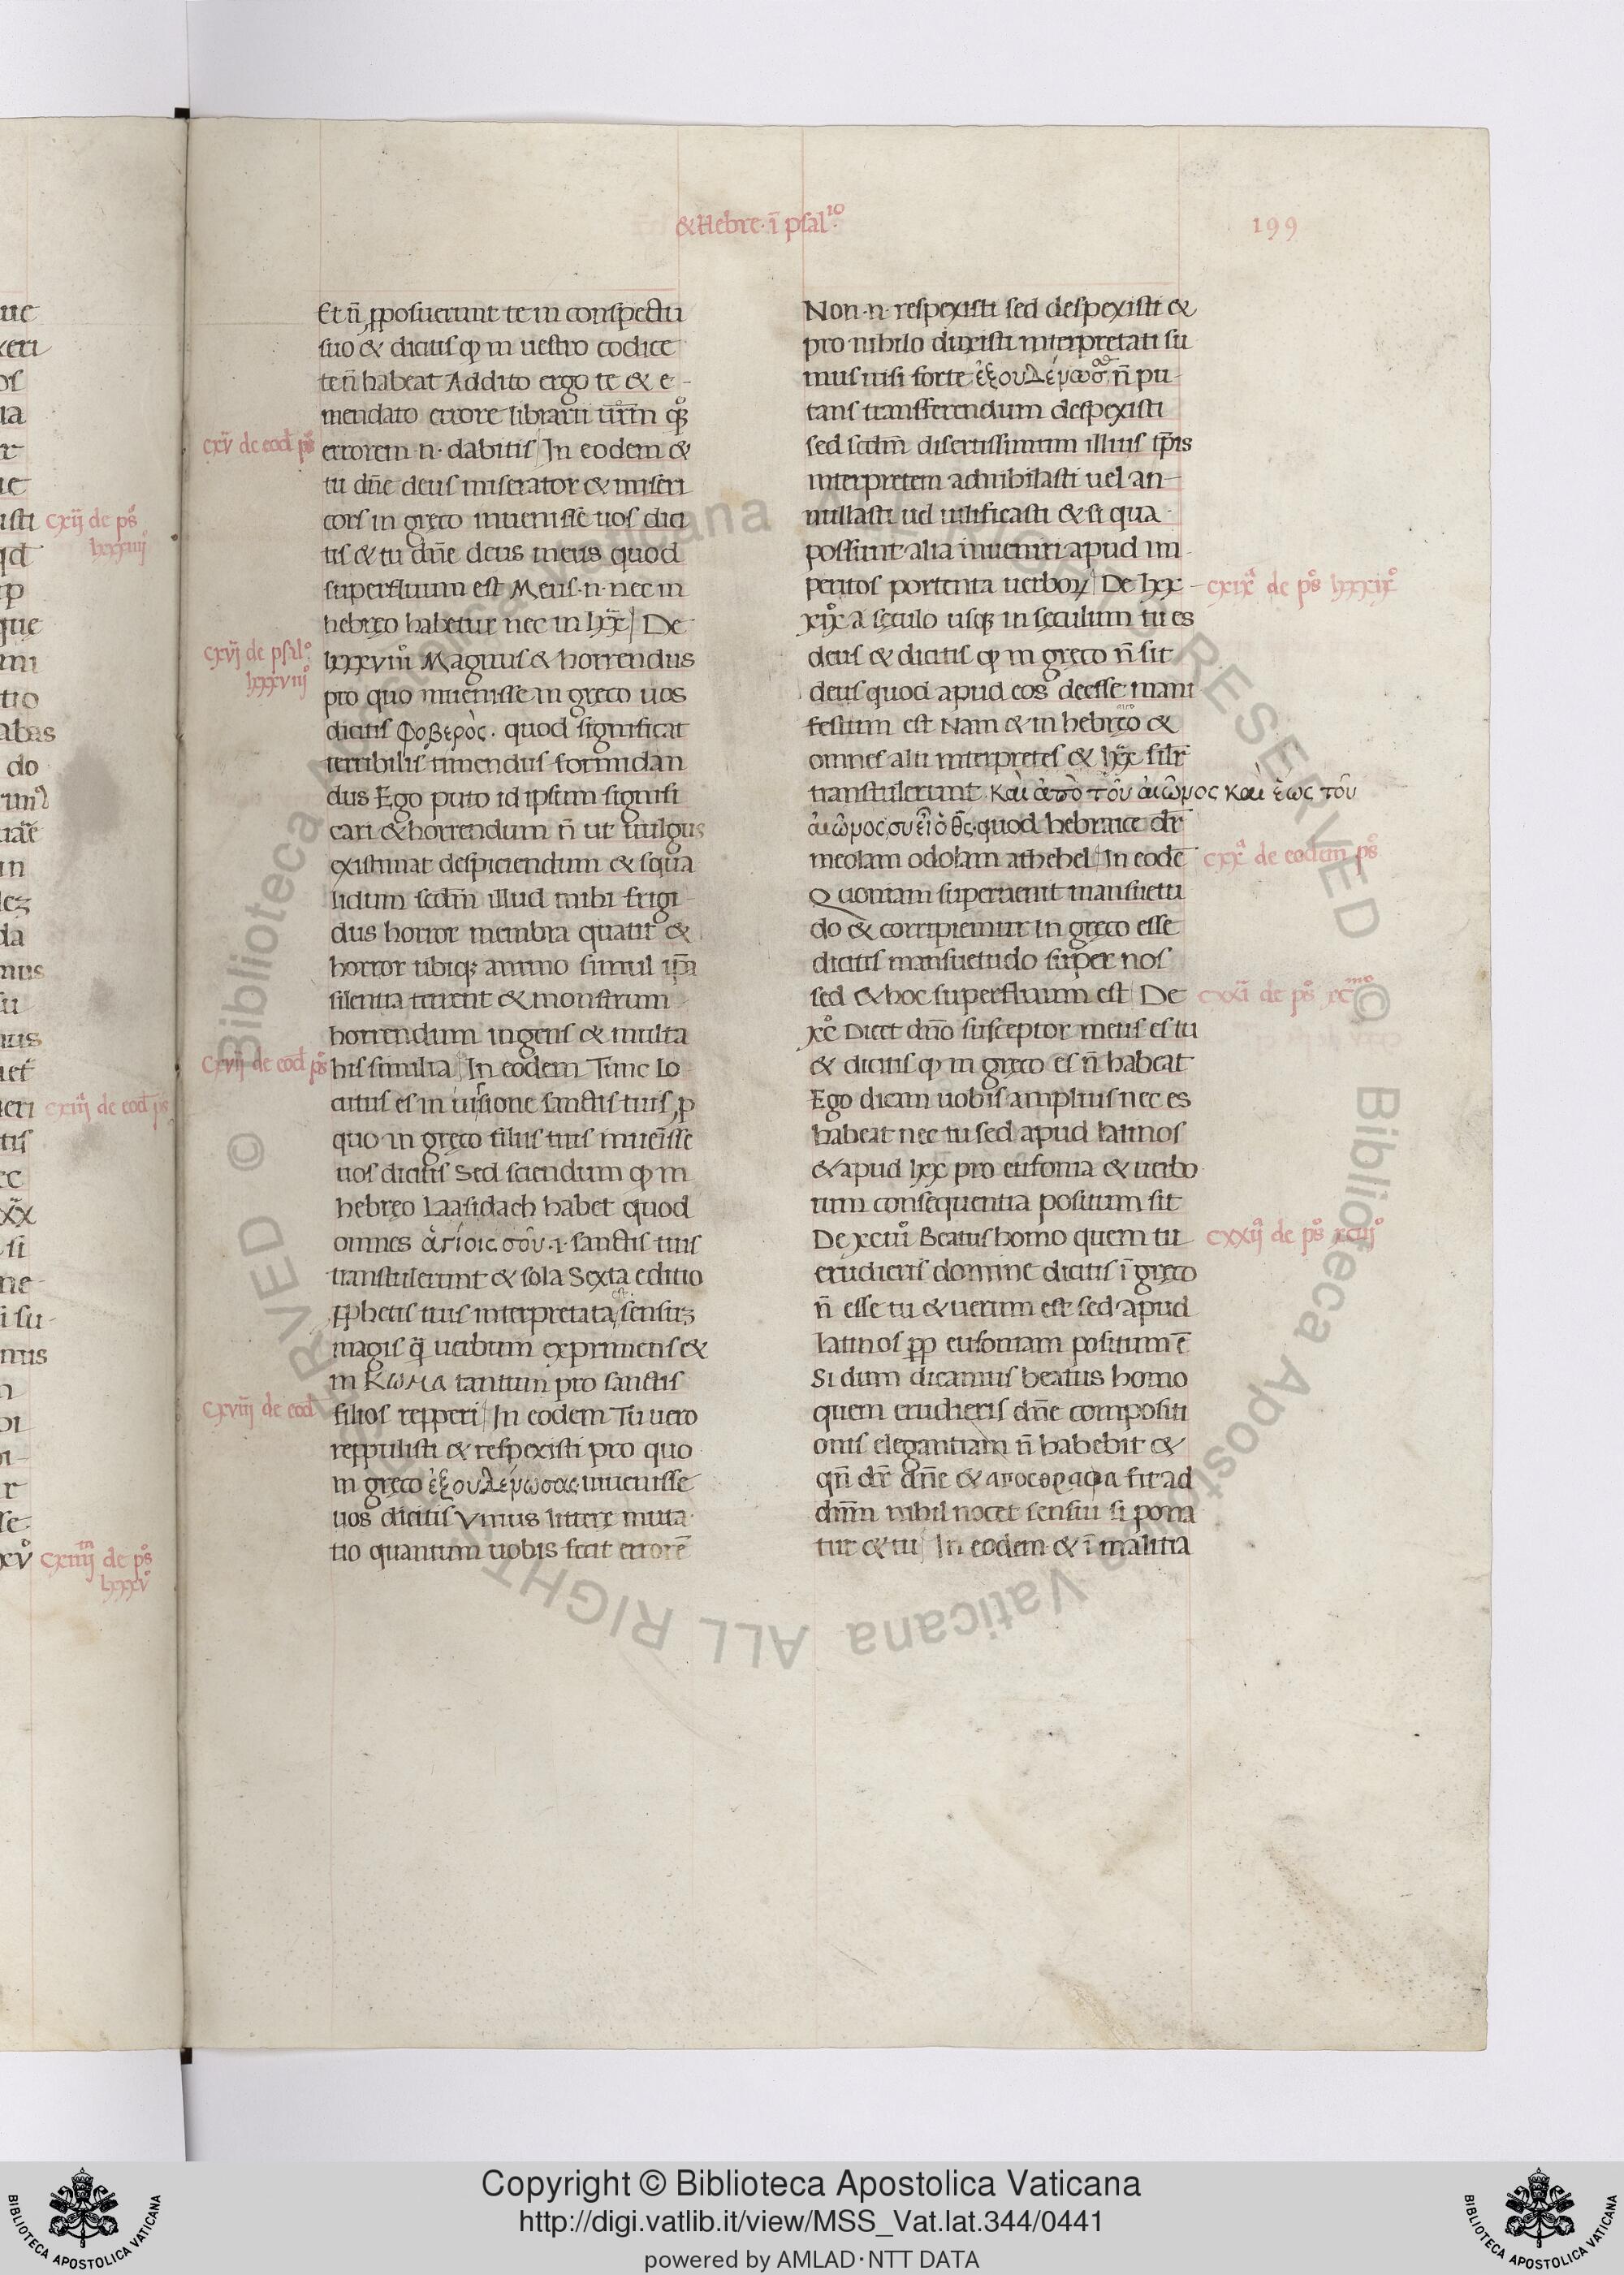 &Hebre·ī psal.ıo
199
Et n̄ ꝓposuerunt te in conspectu
suo & dicitis ꝙ in uestro codice
te n̄ habeat Addito ergo te & e-
mendato errore librarii ūrm̄ qꝫ
errorem ·n· dabitis In eodem &
tu dn̄e deus miserator & miseri
cors in gręco inuenisse uos dici
tis & tu dn̄e deus meus quod
superfluum est Meus ·n· nec in
hebręo habetur nec in lxx̄ De
lxxxviiı̊ Magnus & horrendus
pro quo inuenisse in gręco uos
dicitis φοβερὸς· quod significat
terribilis timendus formidan
dus Ego puto id ipsum signifi
cari & horrendum n̄ ut uulgus
existimat despiciendum & squa
lidum scdm̄ illud mihi frigi
dus horror membra quatit &
horror ubiqꝫ animo simul ip̄a
silentia terrent & monstrum
horrendum ingens & multa
his similia In eodem Tunc lo
cutus es in uisione sanctis tuis ꝓ
quo in gręco filiis tuis inuēisse
uos dicitis Sed sciendum ꝙ in
hebręo Laasidach habet quod
omnes ἁγίοις σοῦ ·i· sanctis tuis
transtulerunt & sola Sexta editio
ꝓphetis tuis interpretata est sensuꝫ
magis q̄ uerbum exprimens &
in Κωμα tantum pro sanctis
filios repperi In eodem Tu uero
reppulisti & respexisti pro quo
in gręco ἐξουλένωσας inuenisse
uos dicitis Vnius litterę muta
tio quantum uobis fecit errorē
cxv̄ de eod̄ ps̊
cxvj de psal̊
lxxxviij̊
cxvij de eod̄ ps̊
cxviij de eod̄
Non ·n· respexisti sed despexisti &
pro nihilo duxisti interpretati su
mus nisi forte n̄ pu
tans transferendum despexisti
sed scdm̄ disertissimum illius tp̄is
interpretem adnihilasti uel an-
nullasti uel uilificasti & si qua
possunt alia inueniri apud im
peritos portenta uerboꝝ De lxx
xix̊ a sęculo usqꝫ in sęculum tu es
deus & dicitis ꝙ in gręco n̄ sit
deus quod apud eos deesse mani
festum est Nam & in hebręo &
omnes alii interpretes & lxx̄ sil̄r
transtulerunt καὶ ἀπὸ τοῦ αἰῶνος καὶ ἕως τοῦ
αἰῶνος συ εἶ ὁ θς̄ quod hebraice dr̄
meolam odolam athehel In eodē
Quoniam superuenit mansuetu
do & corripiemur in gręco esse
dicitis mansuetudo super nos
sed & hoc superfluum est De
xc̊ Dicet dn̄o susceptor meus es tu
& dicitis ꝙ in gręco es n̄ habeat
Ego dicam uobis amplius nec es
habeat nec tu sed apud latinos
& apud lxx pro eufonia & uerbo
rum consequentia positum sit
De xciiı̊ Beatus homo quem tu
erudieris domine dicitis ī gręco
n̄ esse tu & uerum est sed apud
latinos ꝓp eufoniam positum ē
Si dum dicamus beatus homo
quem erudieris dn̄e compositi
onis elegantiam n̄ habebit &
qn̄ dr̄ dn̄e & fit ad
dn̄m nihil nocet sensui si pona
tur & tu In eodem & ī malitia
cxix̊ de ps̊ lxxxix̊
cxx̊ de eodem ps̊
cxxi de ps̊ xc̄mo
cxxij̊ de ps̊ xciij̊
cxij de ps̊
lxxxiiij
cxiij de eod̄ ps̊
cxiiij de ps̊
lxxxv̊
© Biblioteca Apostolica Vaticana ALL RIGHTS RESERVED
© Biblioteca Apostolica Vaticana ALL RIGHTS RESERVED
Copyright © Biblioteca Apostolica Vaticana
http://digi.vatlib.it/view/MSS_Vat.lat.344/0441
powered by AMLAD·NTT DATA
BIBLIOTECA APOSTOLICA VATICANA
BIBLIOTECA APOSTOLICA VATICANA